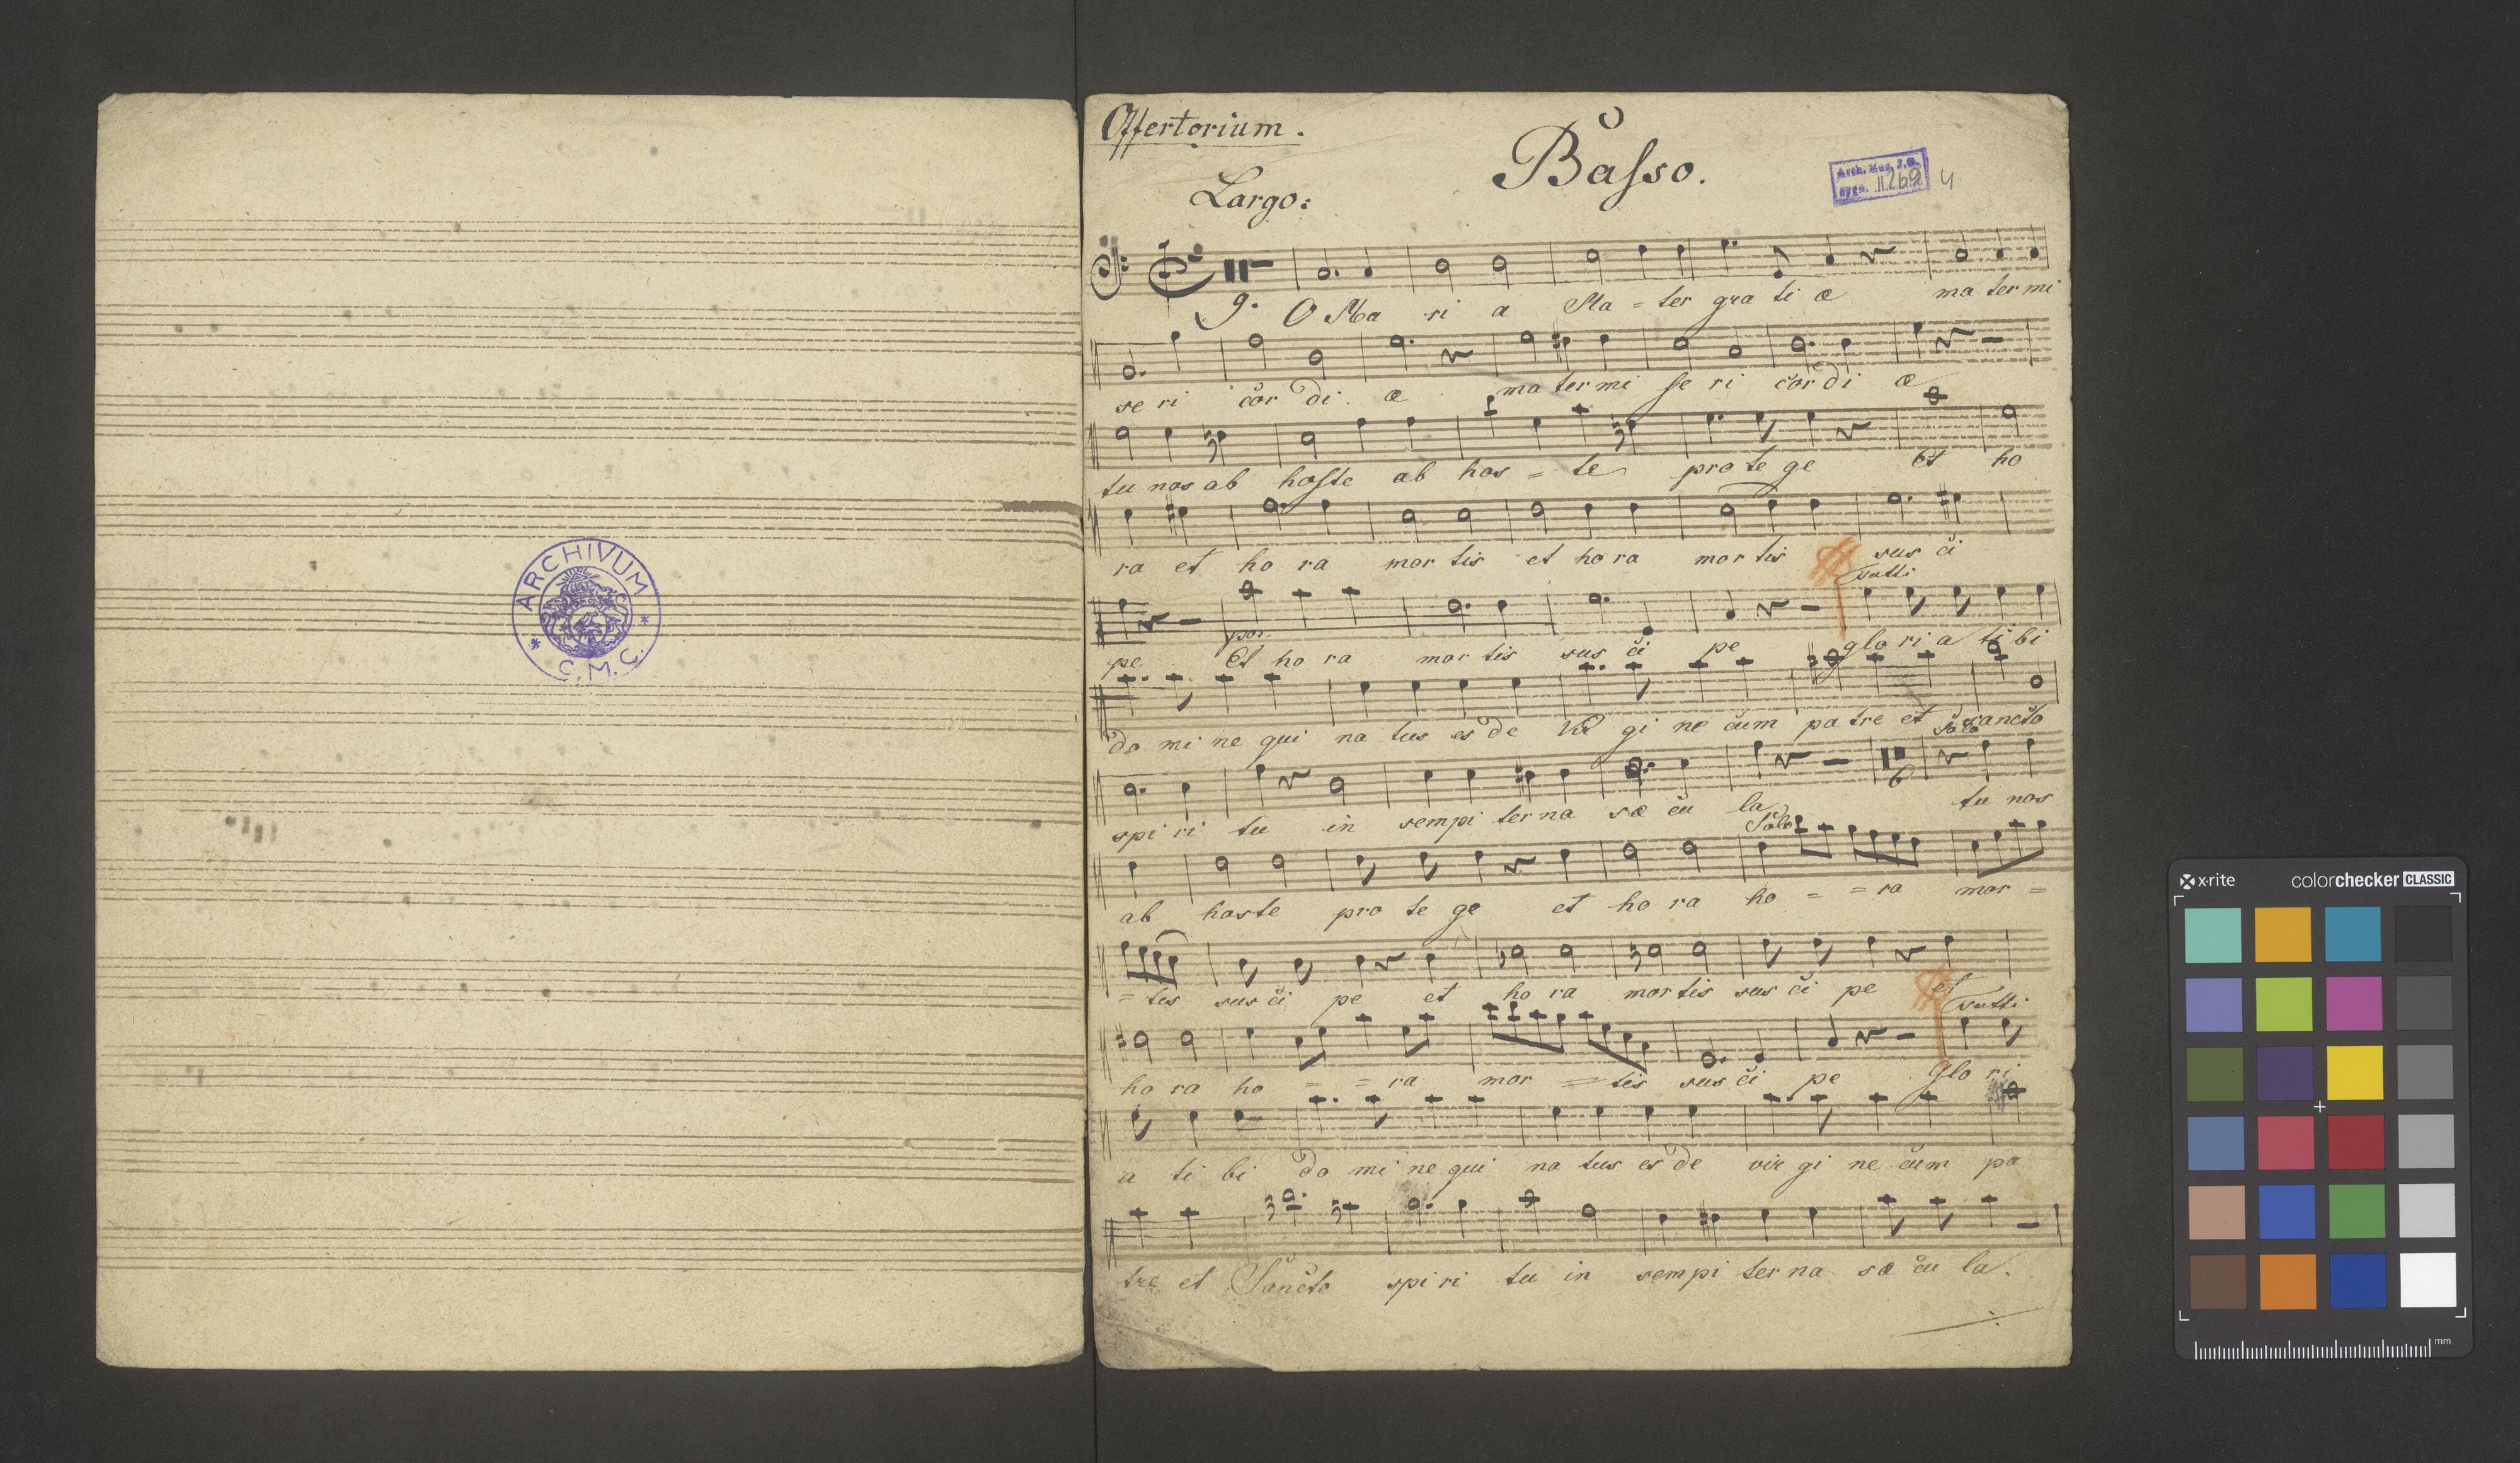 ARCHIVUM
* C.M.C. *
Offertorium.
Basso.
Arch. Mus. J.G.
sygn. II.269 4
Largo:
9. O Ma ri a Ma = ter gra ti æ ma ter mi
se ri cor di æ ma ter mi se ri cor di æ
tu nos ab hoste ab hos = te pro te ge Et ho
ra et ho ra mor tis et ho ra mor tis sus ci
tutti
pe Et ho ra mor tis sus ci pe glo ri a ti bi
do mi ne qui na tus es de Vir gi ne cum pa tre et sancto
Solo
6
spi ri tu in sempi ter na sæ cu la tu nos
Solo
ab hoste pro te ge et ho ra ho = = ra mor =
= tis sus ci pe et ho ra mor tis sus ci pe et
tutti
ho ra ho = = ra mor = tis sus ci pe Glo ri
a ti bi do mi ne qui na tus es de vir gi ne cum pa
tre et Sancto spi ri tu in sempi ter na sæ cu la.
x-rite colorchecker CLASSIC
mm